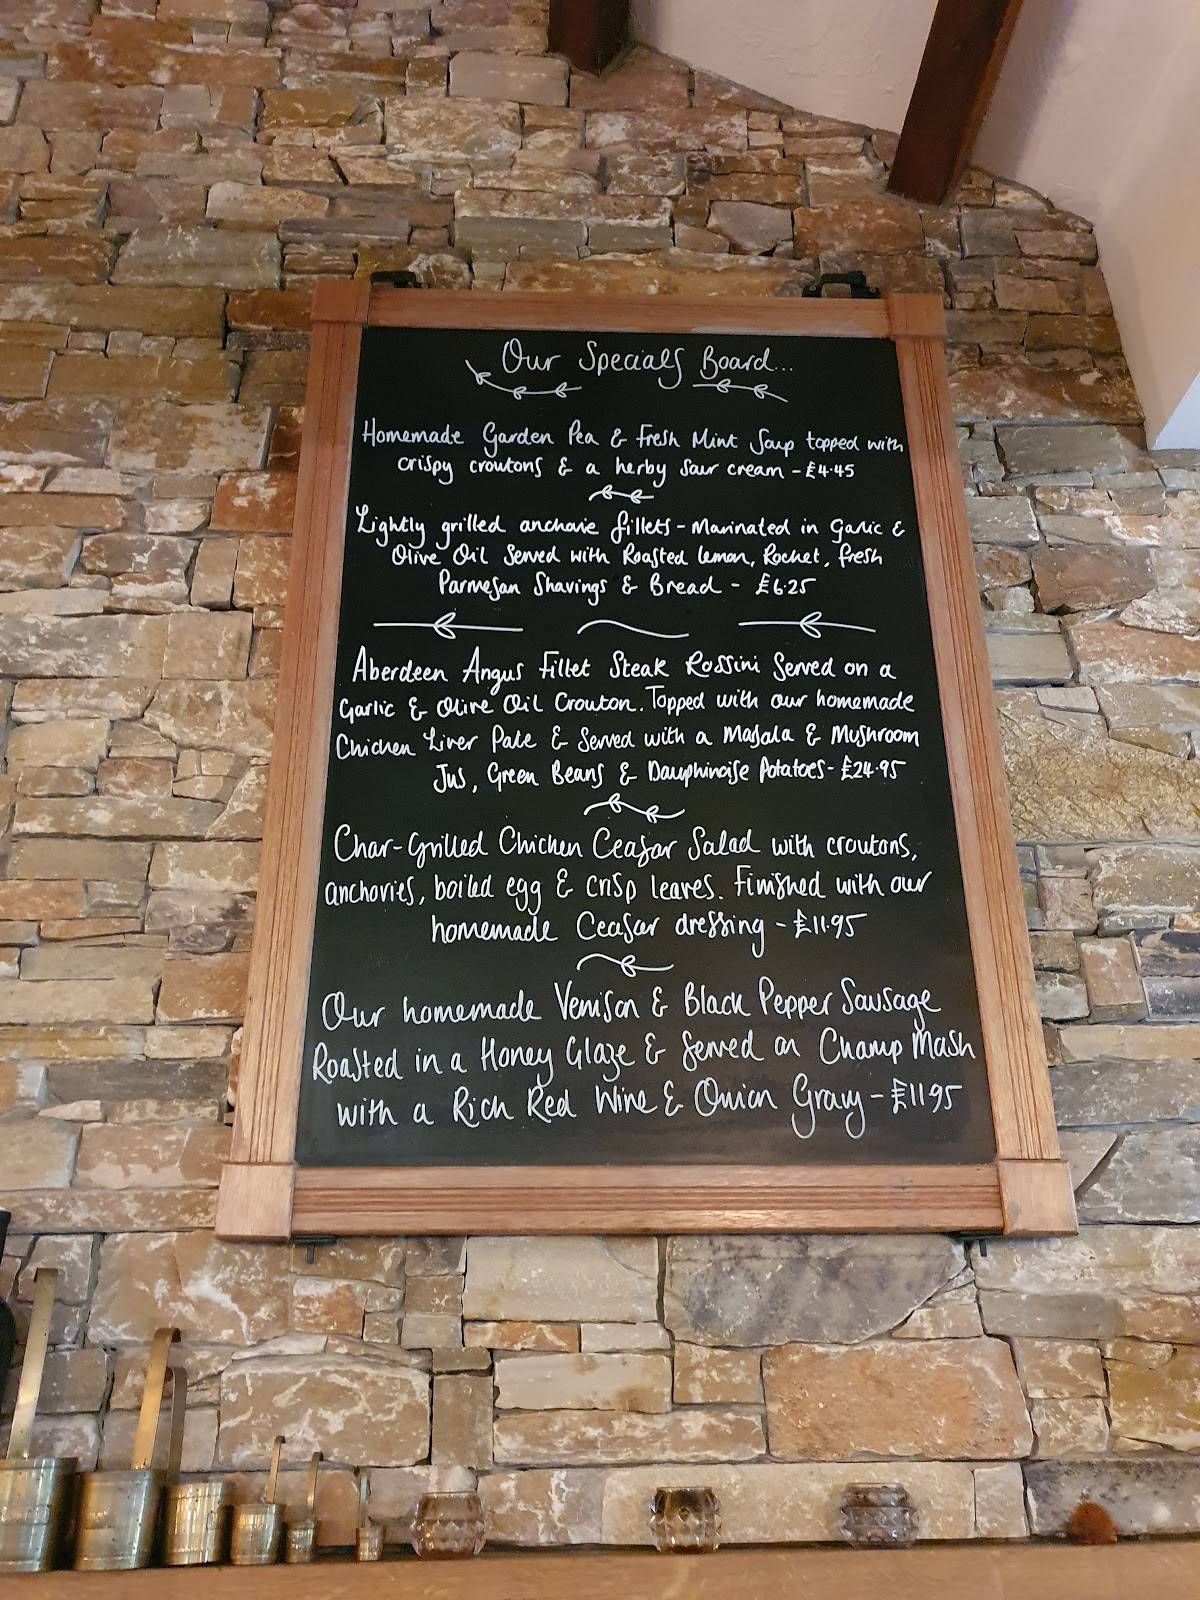 Our Specials Board...
Homemade Garden Pea & Fresh Mint Soup topped with
crispy croutons & a herby sour cream - £4.45
Lightly grilled anchovie fillets - Marinated in Garlic &
Olive Oil Served with Roasted lemon, Rocket, fresh
Parmesan Shavings & Bread - £6.25
Aberdeen Angus Fillet Steak Rossini Served on a
Garlic & Olive Oil Crouton. Topped with our homemade
Chicken Liver Pate & Served with a Masala & Mushroom
Jus, Green Beans & Dauphinoise Potatoes - £24.95
Char-Grilled Chicken Ceasar Salad with croutons,
anchovies, boiled egg & crisp leaves. Finished with our
homemade Ceasar dressing - £11.95
Our homemade Venison & Black Pepper Sausage
Roasted in a Honey Glaze & Served on Champ Mash
with a Rich Red Wine & Onion Gravy - £11.95